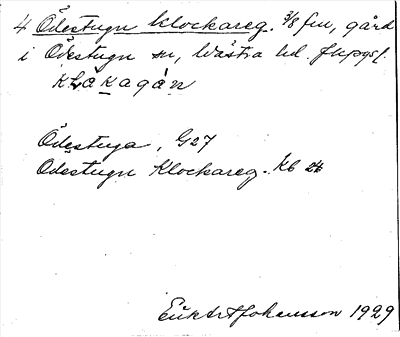 4 Ödestugu klockareg. 3/8 fm, gård
i Ödestugu sn, Västra hd. Jkpgs l.
klåkagån
Ödestuga, G27
Ödestugu Klockareg. Kb 24
Erik Art Johansson 1929